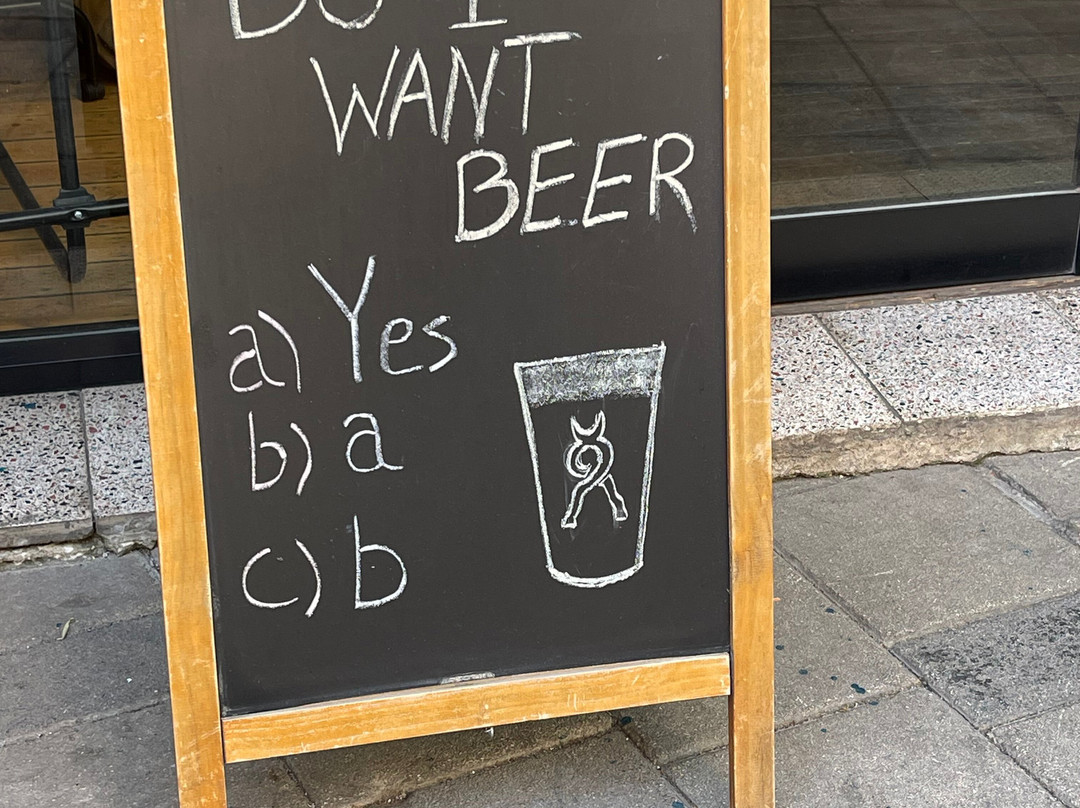 DO I
WANT
BEER
a) Yes
b) a
c) b